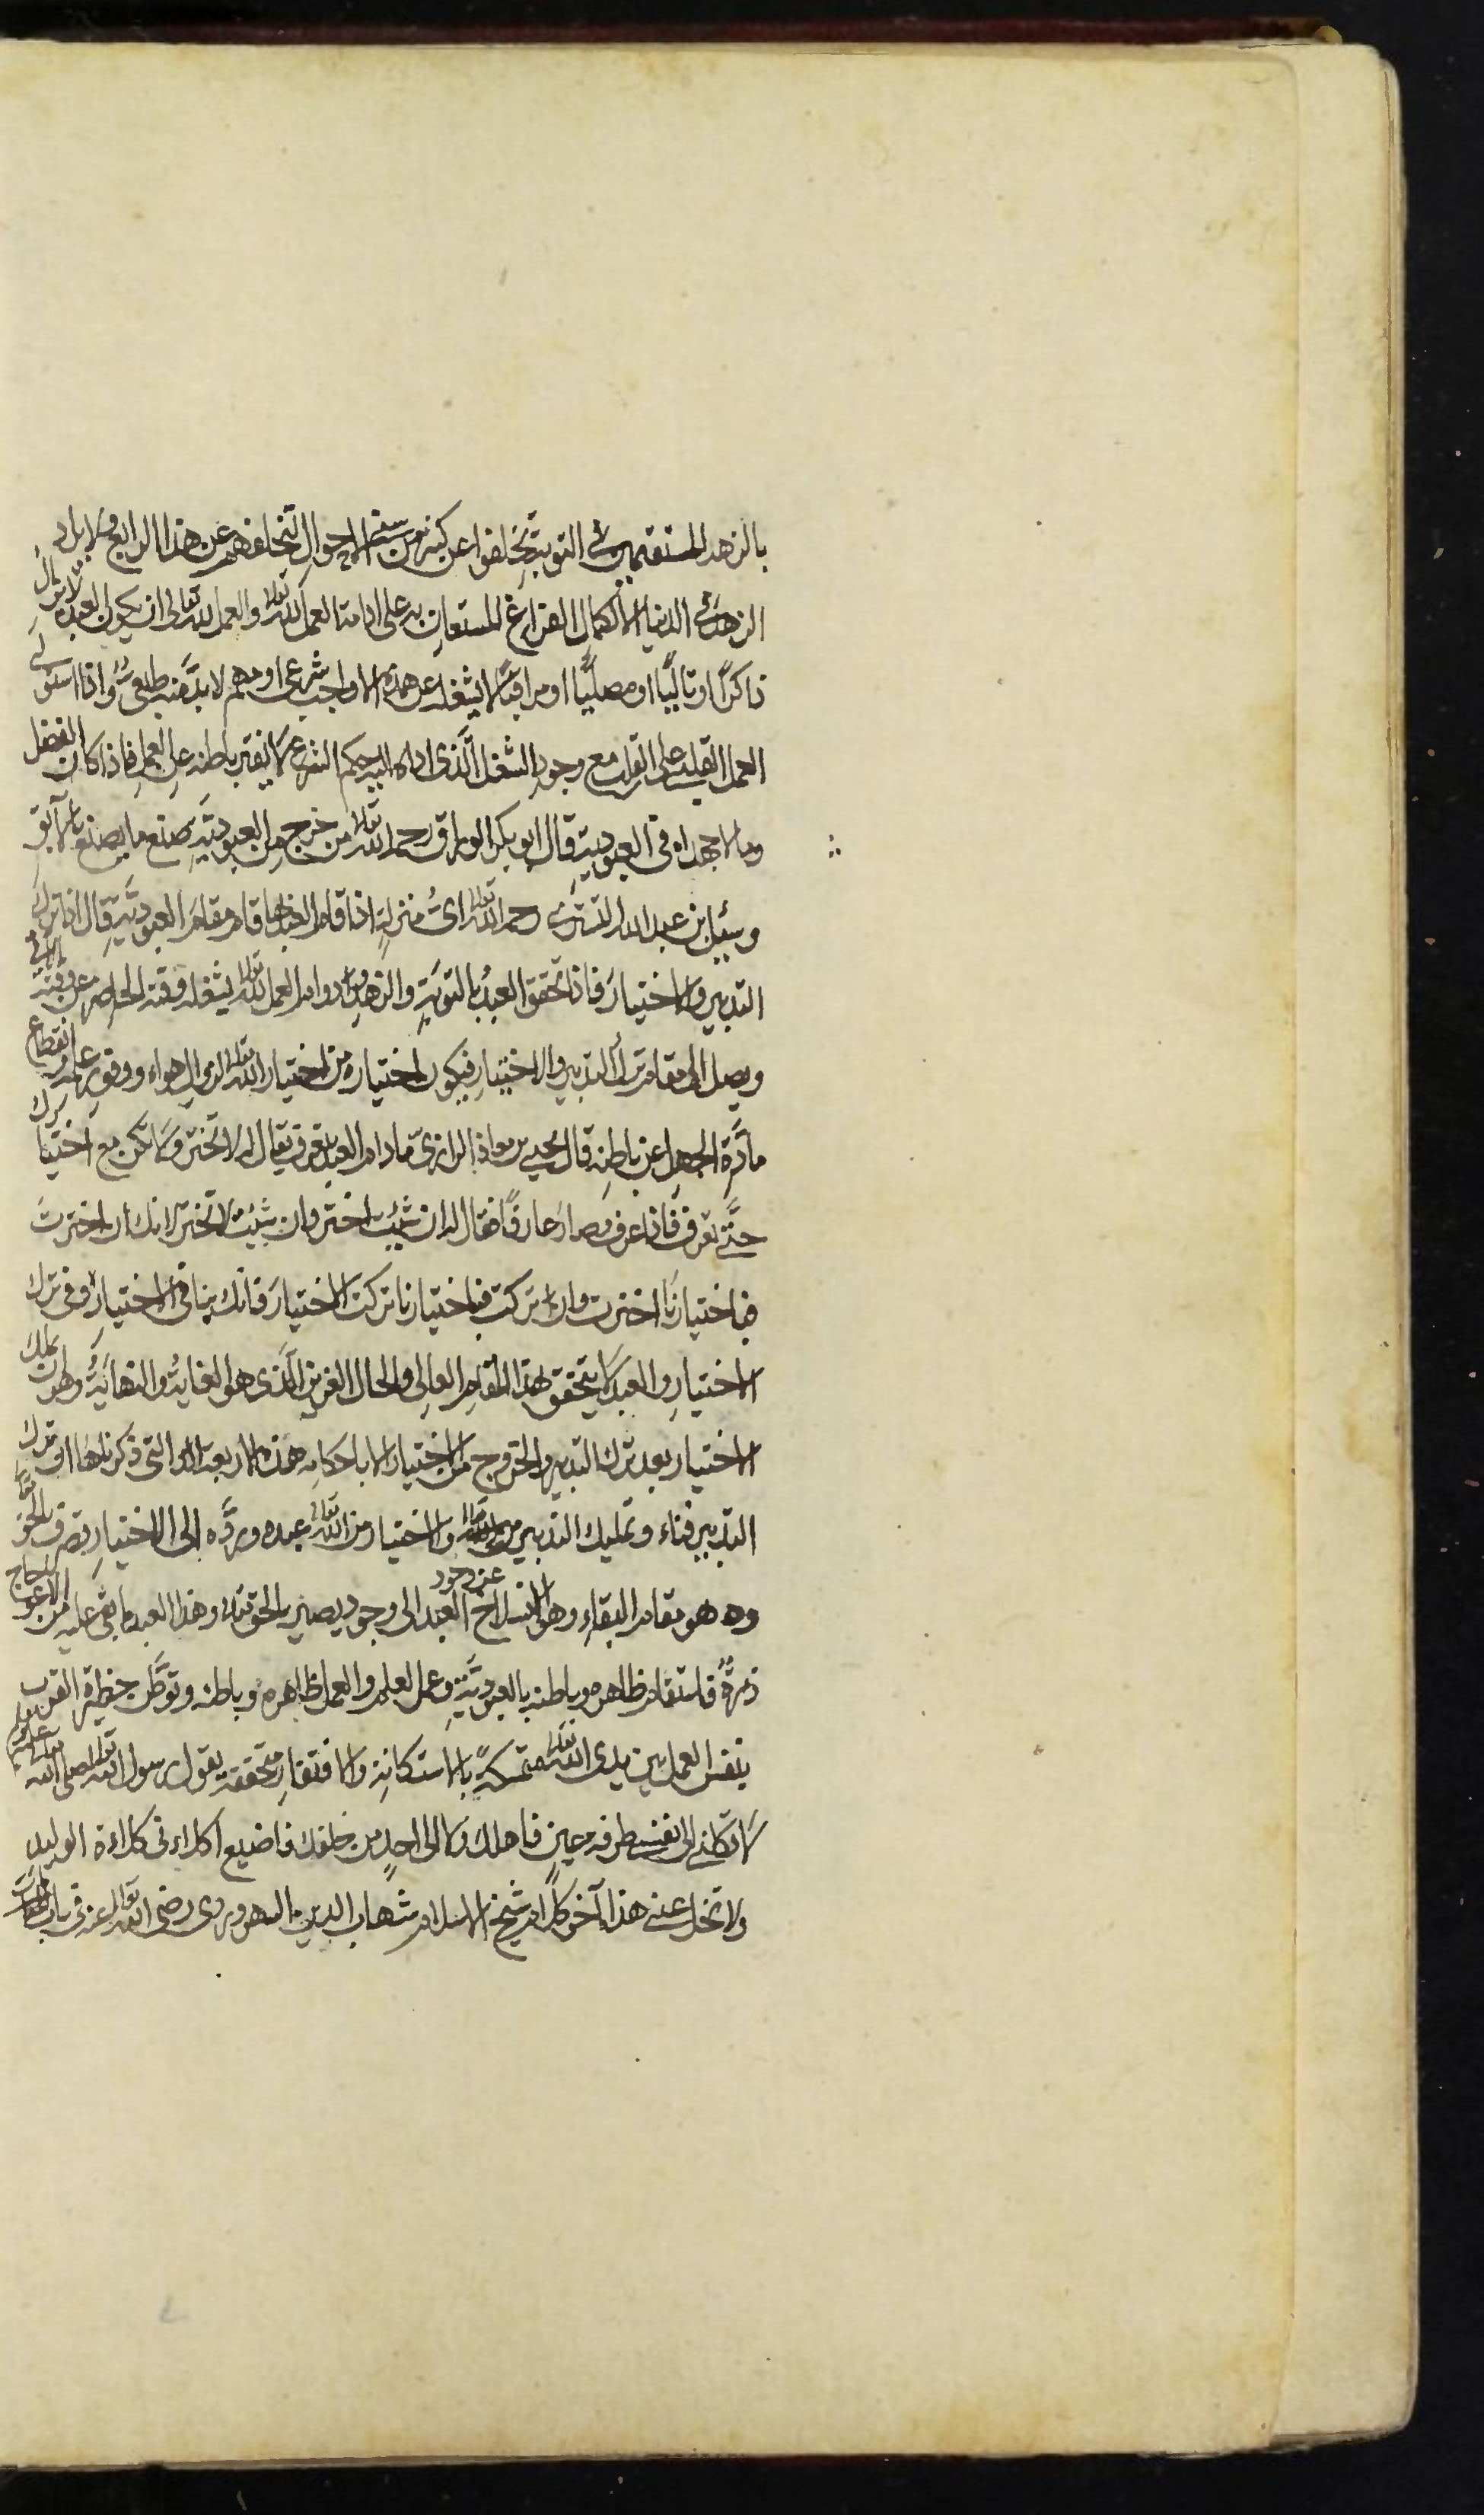 بالزهد المستقيمين في التوبة تخلفوا عن كثير من سنى الاحوال لتخلفهم عن هذا الرابع ولا يراد
الزهد في الدنيا الا لكمال الفراغ المستعان به على ادامة العمل لله تعالى والعمل لله تعالى ان يكون العبد لا يزال
ذاكرًا او تاليًا او مصليًا او مراقبًا لا يشغله عن هذه الا واجب شرعى او مهم لا بد منه طبعى واذا استولى
العمل القلبى على القلب مع وجود الشغل الذى اداه اليه حكم الشرع لا يفتر باطنه عن العمل فاذا كان الفضل
وما لا جهدا فى العبودية قال ابو بكر الوراق رحمه الله تعالى من خرج من العبودية صنع ما يصنع بالآبق
وسئل بن عبد الله التسترى رحمه الله تعالى اى منزلة اذا قام العبد بها قام مقام العبودية قال اذا ترك
التدبير والاختيار فاذا تحقق العبد بالتوبة والزهد ودوام العمل لله تعالى يشغله وقته الحاضر عن وقته الآتى
ويصل الى مقام ترك التدبير والاختيار فيكون اختياره من اختيار الله تعالى لزوال هواه ووفور علمه وانقطاع
مادة الجهل عن باطنه قال يحيى بن معاذ الرازى ما دام العبد يتعرف يقال له لا تختر ولا تكن مع اختيارك
حتى تعرف فاذا عرف وصار عارفًا فقال له ان شئت اختر وان شئت لا تختر لانك ان اخترت
فباختيارنا اخترت وان تركت فباختيارنا تركت الاختيار فانك بنا فى الاختيار وفى ترك
الاختيار والعبد لا يتحقق بهذا المقام العالى والحال العزيز الذى هو الغاية والنهاية وهو ان يملك
الاختيار بعد ترك التدبير والخروج من الاختيار الا باحكامه هذه الاربعة التى ذكرناها اذ ترك
التدبير فناء وتمليك التدبير من الله تعالى والاختيار من الله تعالى عبده ورده الى الاختيار تصرف بالحق
وه هو مقام البقاء وهو الانسلاخ عن وجود العبد الى وجود يصير بالحق وهذا العبد ما بقى عليه من الاعوجاج
ذرة فاستقام ظاهره وباطنه بالعبودية وعمل العلم والعمل ظاهره وباطنه وتوطن حظيرة القرب
بنفس العمل بين يدى الله تعالى متمسكة بالاستكانة والافتقار متحققة بقول رسول الله صلى الله تعالى عليه وسلم
لا تكلنى الى نفسى طرفة عين فاهلك ولا الى احد من خلقك فاضيع اكلاءنى كلاءة الوليد
ولا تخل عنى هذا آخر كلام شيخ الاسلام شهاب الدين السهروردى رضى الله تعالى عنه فى باب